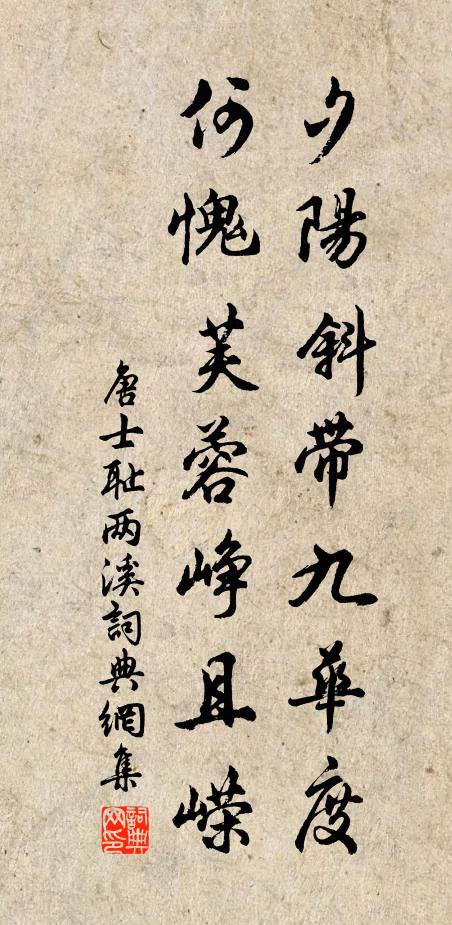 夕陽斜帶九華度
何愧芙蓉峥且嶸
唐士耻两溪詞典網集
詞典網印